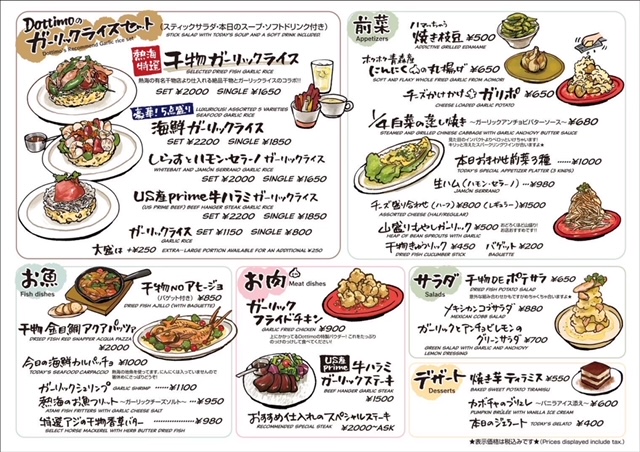 Dottimoの
ガーリックライスセット
(スティックサラダ・本日のスープ・ソフトドリンク付き)
STICK SALAD WITH TODAY'S SOUP AND A SOFT DRINK INCLUDED
熱海特選
干物ガーリックライス
SELECTED DRIED FISH GARLIC RICE
熱海の有名干物店より仕入れる絶品干物とガーリックライスのコラボ!!
SET ¥2000 SINGLE ¥1650
豪華!5点盛り
LUXURIOUS! ASSORTED 5 VARIETIES
SEAFOOD GARLIC RICE
海鮮ガーリックライス
SET ¥2200 SINGLE ¥1850
しらすとハモン・セラーノガーリックライス
WHITEBAIT AND JAMON SERRANO GARLIC RICE
SET ¥2000 SINGLE ¥1650
US産prime牛ハラミガーリックライス
(US PRIME BEEF) BEEF HANGER GARLIC RICE
SET ¥2200 SINGLE ¥1850
ガーリックライス SET ¥1150 SINGLE ¥800
GARLIC RICE
大盛は +¥250 EXTRA-LARGE PORTION AVAILABLE FOR AN ADDITIONAL ¥250
前菜
Appetizers
ハマっちゃう
焼き枝豆 ¥500
ADDICTIVE GRILLED EDAMAME
ホックホク青森産
にんにくの丸揚げ ¥650
SOFT AND FLAKY WHOLE FRIED GARLIC FROM AOMORI
チーズかけかけ ガリポ ¥650
CHEESE LOADED GARLIC POTATO
1/4白菜の蒸し焼き ~ガーリックアンチョビバターソース~ ¥680
STEAMED AND GRILLED CHINESE CABBAGE WITH GARLIC ANCHOVY BUTTER SAUCE
本日おまかせ前菜3種 ¥1000
TODAY'S SPECIAL APPETIZER PLATTER (3 KINDS)
生ハム(ハモン・セラーノ) ¥980
JAMÓN SERRANO
チーズ盛り合わせ(ハーフ)¥800(レギュラー)¥1500
ASSORTED CHEESE (HALF/REGULAR)
山盛りもやしガーリック ¥500
HEAP OF BEAN SPROUTS WITH GARLIC
干物きゅうリック ¥450 バゲット ¥200
DRIED FISH CUCUMBER STICK BAGUETTE
お魚
Fish dishes
干物NOアヒージョ
(バゲット付き) ¥850
DRIED FISH AJILLO (WITH BAGUETTE)
干物 金目鯛アクアパッツァ
DRIED FISH RED SNAPPER ACQUA PAZZA
¥2000
今日の海鮮カルパッチョ ¥1000
TODAY'S SEAFOOD CARPACCIO
ガーリックシュリンプ GARLIC SHRIMP ¥1100
熱海のお魚フリット ~ガーリックチーズソルト~ ¥950
ATAMI FISH FRITTERS WITH GARLIC CHEESE SALT
特選アジの干物香草バター ¥980
SELECT HORSE MACKEREL WITH HERB BUTTER DRIED FISH
お肉
Meat dishes
ガーリック
フライドチキン
GARLIC FRIED CHICKEN ¥900
US産prime
牛ハラミ
ガーリックステーキ
BEEF HANGER GARLIC STEAK
¥1500
おすすめ仕入れのスペシャルステーキ
RECOMMENDED SPECIAL STEAK ¥2000~ASK
サラダ
Salads
干物DEポテサラ ¥650
DRIED FISH POTATO SALAD
メキシカンコブサラダ ¥880
MEXICAN COBB SALAD
ガーリックとアンチョビレモンの
グリーンサラダ ¥700
GREEN SALAD WITH GARLIC AND ANCHOVY
LEMON DRESSING
デザート
Desserts
焼き芋ティラミス ¥550
BAKED SWEET POTATO TIRAMISU
カボチャのブリュレ ~バニラアイス添え~ ¥600
PUMPKIN BRÛLÉE WITH VANILLA ICE CREAM
本日のジェラート TODAY'S GELATO ¥400
★表示価格は税込みです★(Prices displayed include tax.)